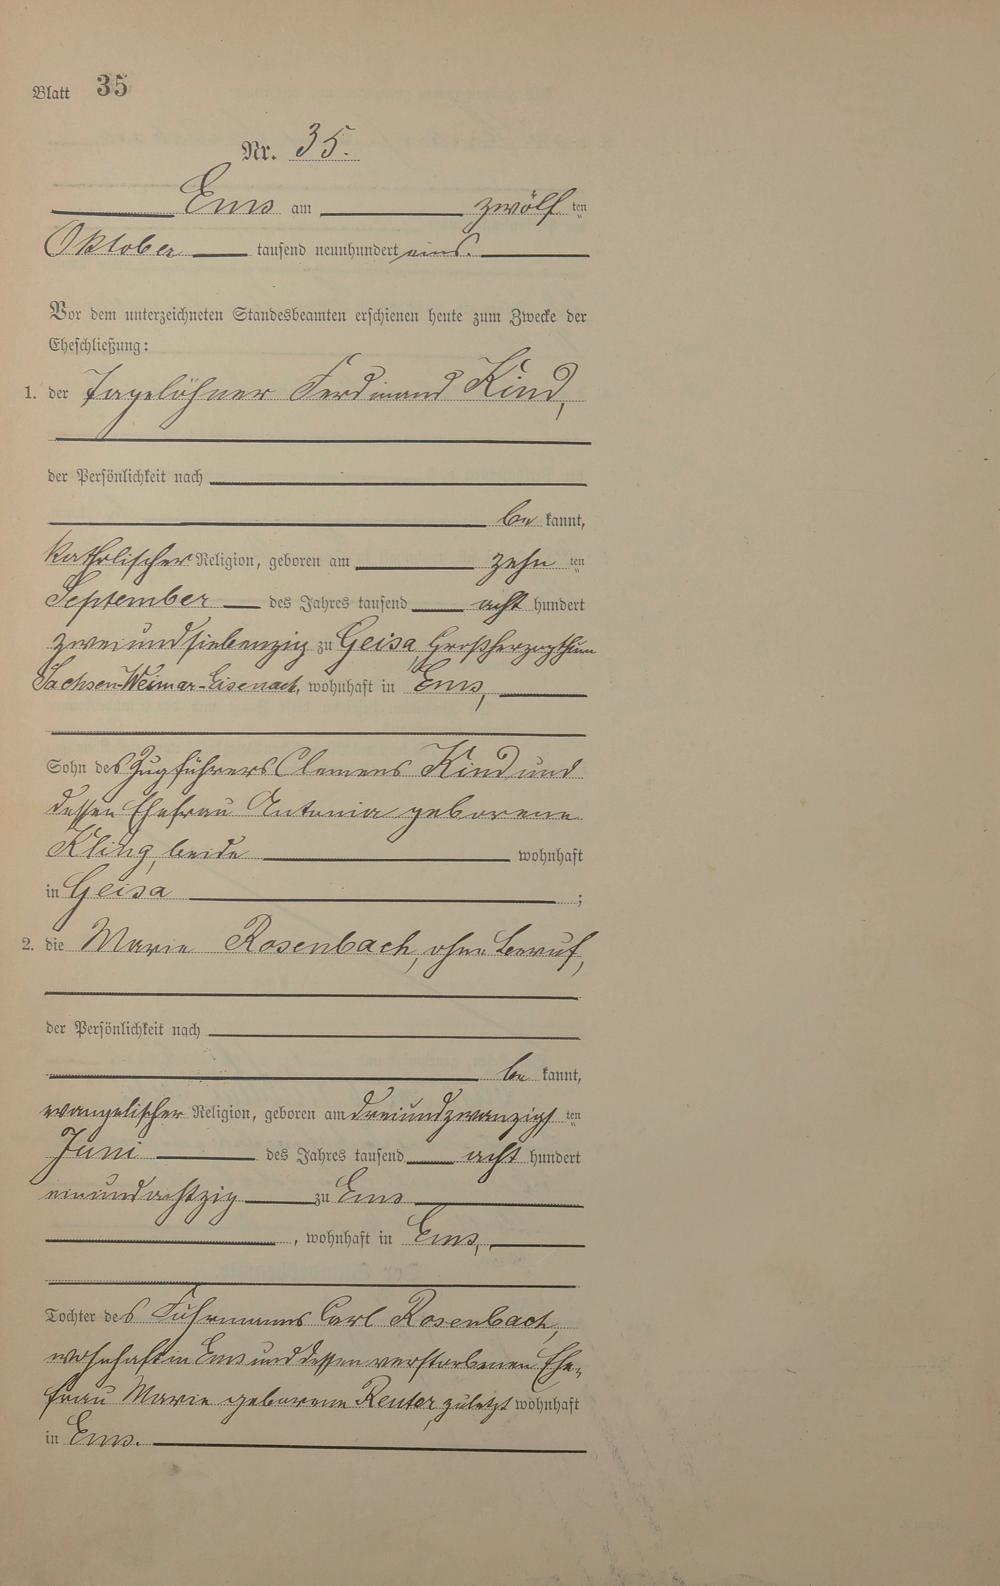 Blatt 35
Nr. 35.
Ems am zwölf ten
Oktober tausend neunhundert eins.
Vor dem unterzeichneten Standesbeamten erschienen heute zum Zwecke der
Eheschließung:
1. der Tagelöhner Ferdinand Kind,
der Persönlichkeit nach
be kannt,
katholischer Religion, geboren am zehn ten
September des Jahres tausend acht hundert
zweiundsiebenzig zu Geisa, Großherzogthum
Sachsen-Weimar-Eisenach, wohnhaft in Ems,
Sohn des Zugführers Clemens Kind und
dessen Ehefrau Antonia geborene
Kling, beide wohnhaft
in Geisa ;
2. die Marie Rosenbach, ohne Beruf,
der Persönlichkeit nach
be kannt,
evangelischer Religion, geboren am dreiundzwanzigs ten
Juni des Jahres tausend acht hundert
einundachtzig zu Ems
, wohnhaft in Ems,
Tochter des Fuhrmanns Carl Rosenbach,
wohnhaft in Ems und dessen verstorbenen Ehe-
frau Marie geborene Reuter, zuletzt wohnhaft
in Ems.